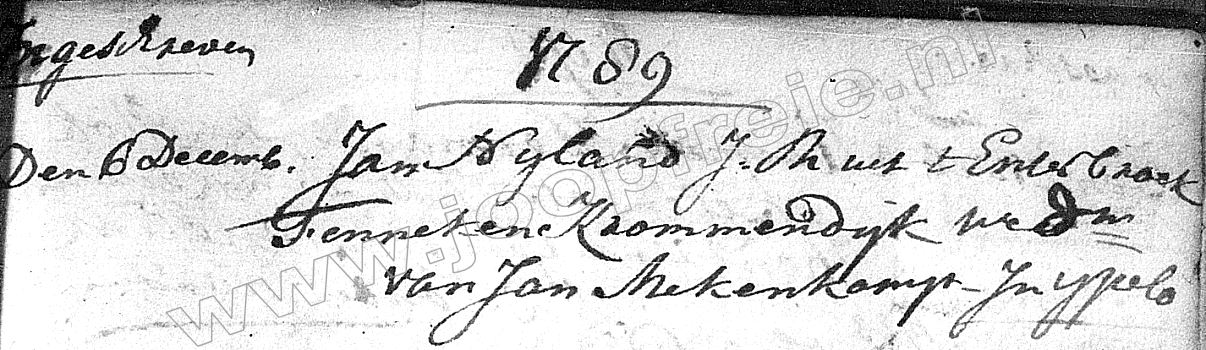 Ingeschreven
1789
Den 6 Decemb. Jan Nyland J. M uit t Enterbroek
Fenneken Krommendijk wedw
van Jan Mekenkamp - In ypelo
www.joopfreie.nl